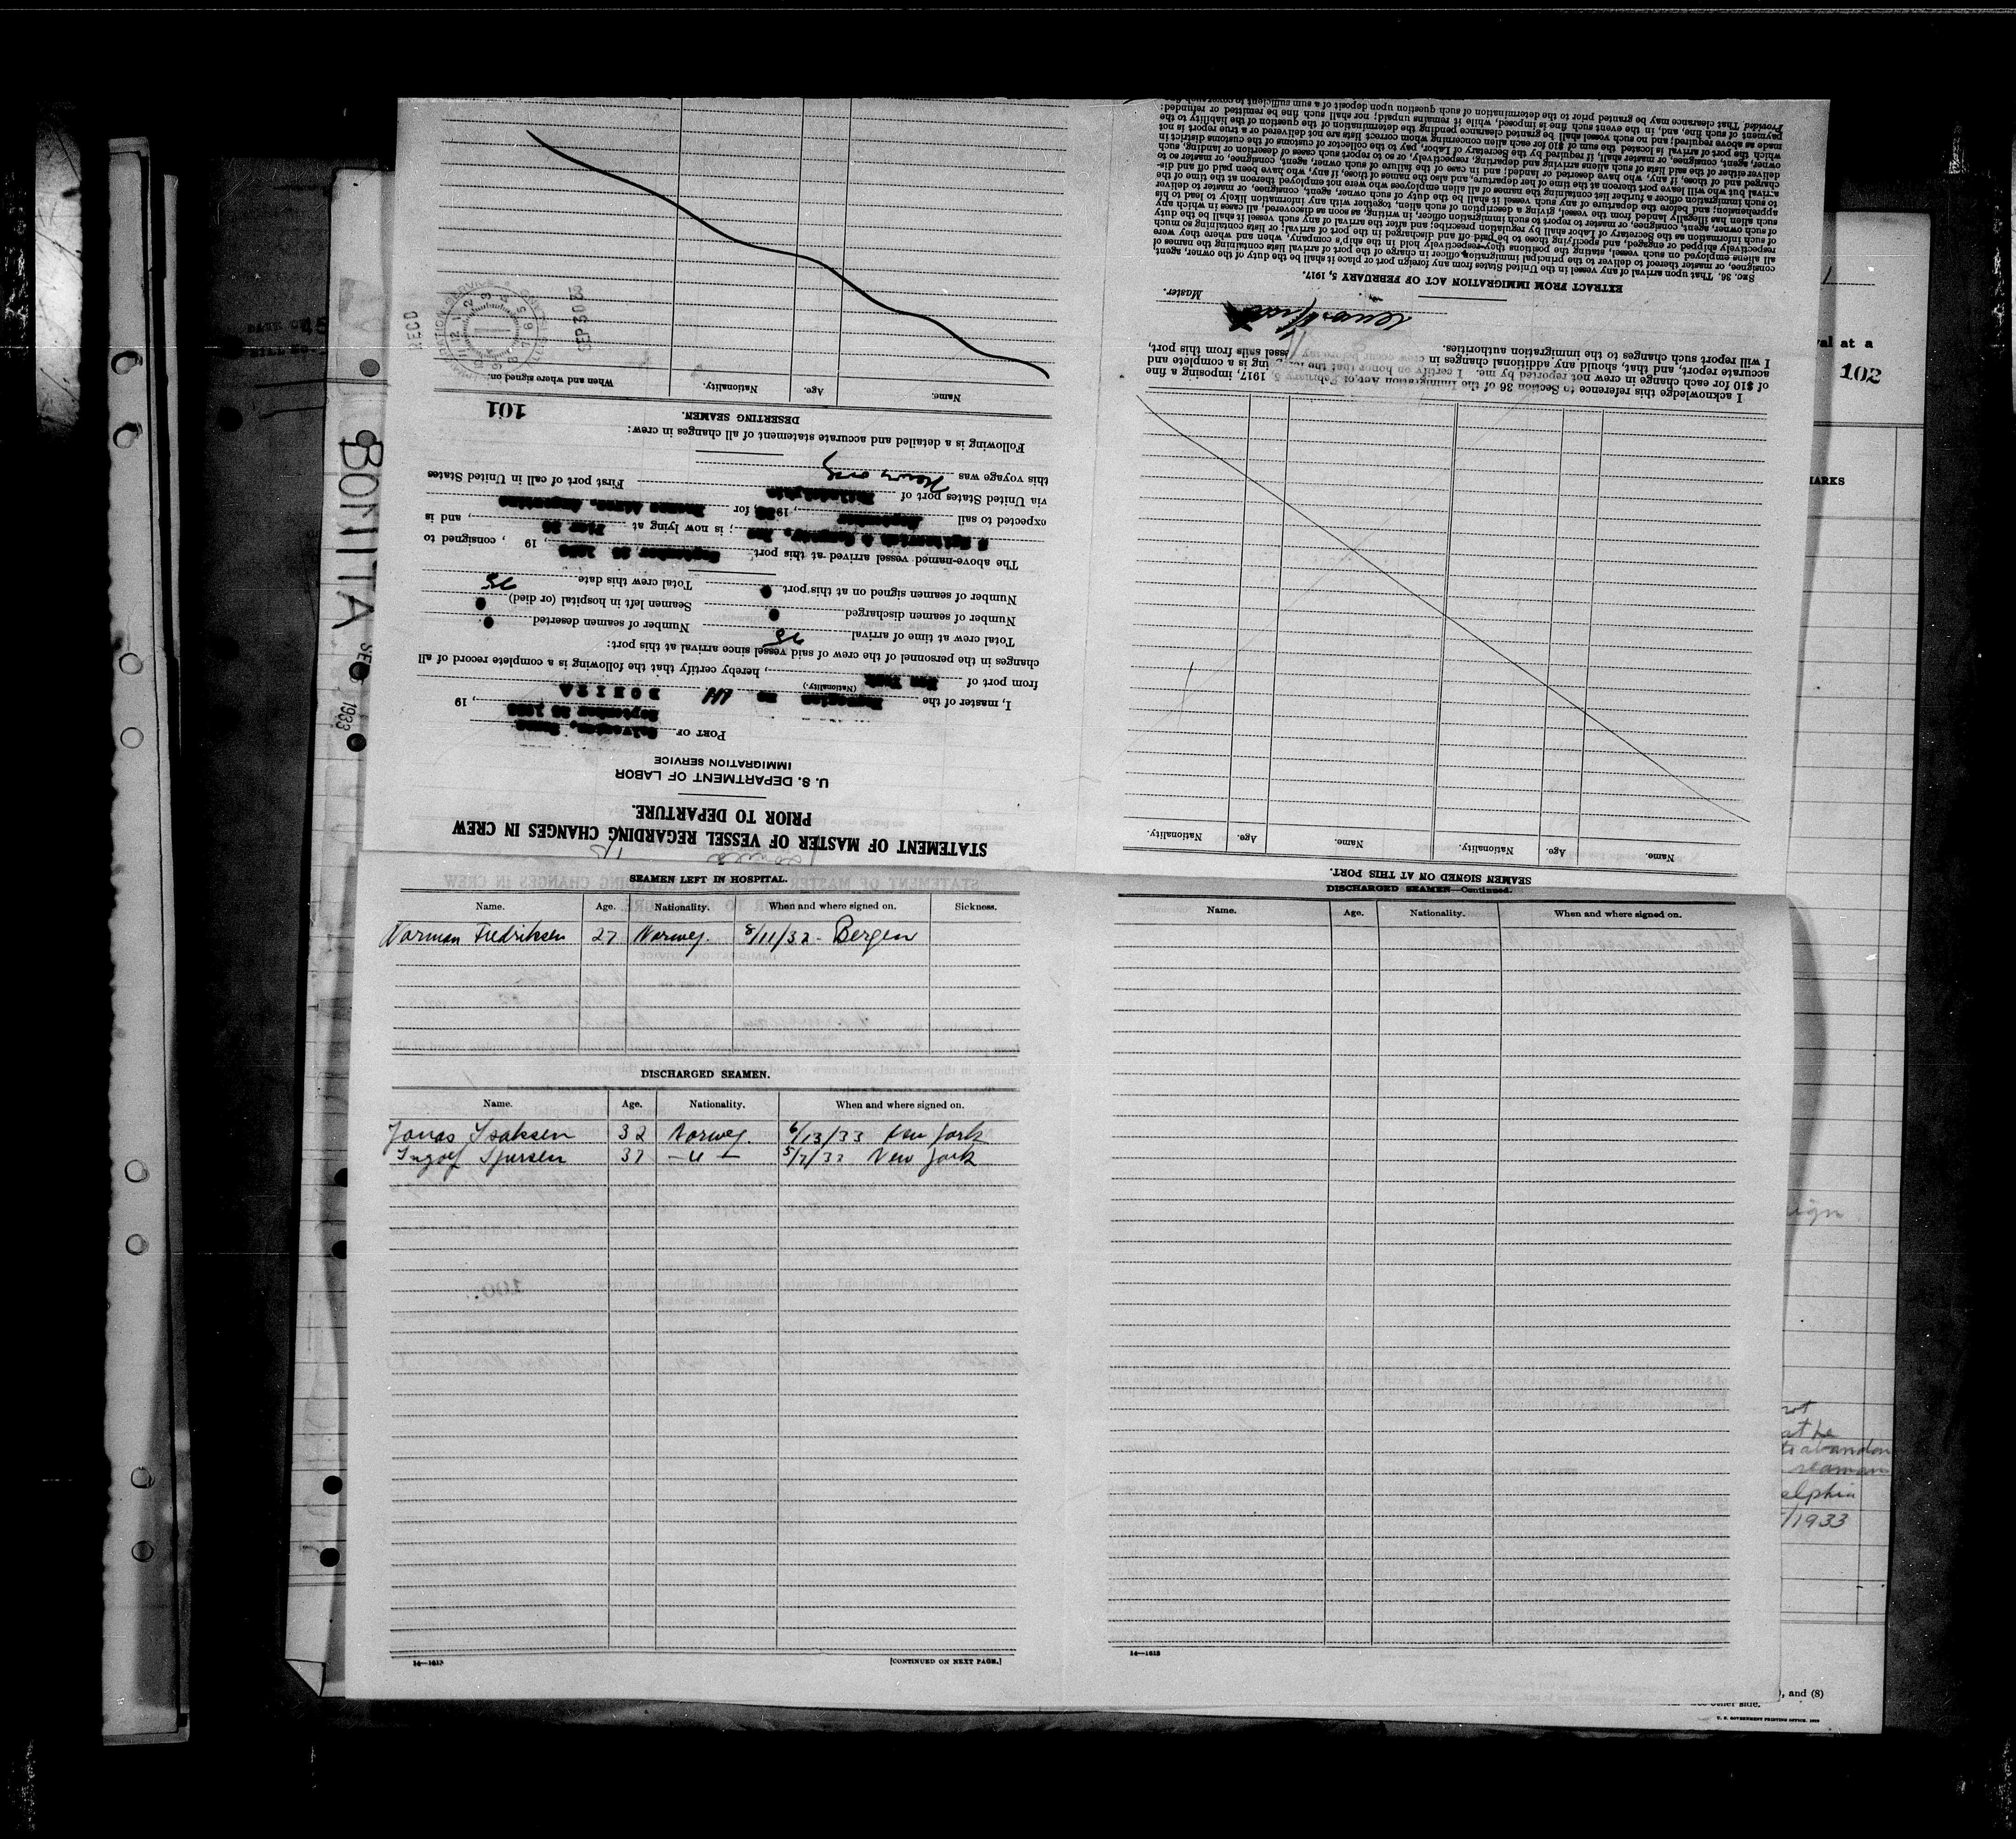 STATEMENT OF MASTER OF VESSEL REGARDING CHANGES IN CREW
PRIOR TO DEPARTURE.
U. S. DEPARTMENT OF LABOR
IMMIGRATION SERVICE
PORT OF Galveston, Texas
September 1933, 19
I, master of the Norwegian BONITA
(Nationality.)
from port of New York, hereby certify that the following is a complete record of all
changes in the personnel of the crew of said vessel since arrival at this port:
Total crew at time of arrival Number of seamen deserted
Number of seamen discharged Seamen left in hospital (or died)
Number of seamen signed on at this port Total crew this date
The above-named vessel arrived at this port September, 19 , consigned to
& Company, Inc, is now lying at Pier, and is
expected to sail September, 19 for Buenos Aires, Argentine
via United States port of Philadelphia First port of call in United States
this voyage was
Following is a detailed and accurate statement of all changes in crew:
DESERTING SEAMEN.
101
Name. Age. Nationality. When and where signed on.
RECD
IMMIGRATION SERVICE
SEP 30 33
SEAMEN SIGNED ON AT THIS PORT.
Name. Age. Nationality. Name. Age. Nationality.
I acknowledge this reference to Section 36 of the Immigration Act of February 5, 1917, imposing a fine
of $10 for each change in crew not reported by me. I certify on honor that the ing is a complete and
accurate report, and that, should any additional changes in crew occur before my vessel sails from this port,
I will report such changes to the immigration authorities.
Master.
EXTRACT FROM IMMIGRATION ACT OF FEBRUARY 5, 1917.
SEC. 36. That upon arrival of any vessel in the United States from any foreign port or place it shall be the duty of the owner, agent,
consignee, or master thereof to deliver to the principal immigration officer in charge of the port of arrival lists containing the names of
all aliens employed on such vessel, stating the positions they respectively hold in the ship's company, when and where they were
respectively shipped or engaged, and specifying those to be paid off and discharged in the port of arrival; or lists containing so much
of such information as the Secretary of Labor shall by regulation prescribe; and after the arrival of any such vessel it shall be the duty
of such owner, agent, consignee, or master to report to such immigration officer, in writing, as soon as discovered, all cases in which any
such alien has illegally landed from the vessel, giving a description of such alien, together with any information likely to lead to his
apprehension; and before the departure of any such vessel it shall be the duty of such owner, agent, consignee, or master to deliver
to such immigration officer a further list containing the names of all alien employees who were not employed thereon at the time of the
arrival but who will leave port thereon at the time of her departure, and also the names of those, if any, who have been paid off and dis-
charged and of those, if any, who have deserted or landed; and in case of the failure of such owner, agent, consignee, or master so to
deliver either of the said lists of such aliens arriving and departing, respectively, or so to report such cases of desertion or landing, such
owner, agent, consignee, or master shall, if required by the Secretary of Labor, pay to the collector of customs of the customs district in
which the port of arrival is located the sum of $10 for each alien concerning whom correct lists are not delivered or a true report is not
made as above required; and no such vessel shall be granted clearance pending the determination of the question of the liability to the
payment of such fine, and, in the event such fine is imposed, while it remains unpaid; nor shall such fine be remitted or refunded:
Provided That clearance may be granted prior to the determination of such question upon deposit of a sum sufficient to cover such fine
SEAMEN LEFT IN HOSPITAL.
Name. Age. Nationality. When and where signed on. Sickness.
Norman Fredriksen 27 Norweg. 8/11/32 - Bergen
DISCHARGED SEAMEN.
Name. Age. Nationality. When and where signed on.
Jonas Isaksen 32 Norweg. 6/13/33 New York
Ingolf Sjursen 37 - " - 5/7/33 New York
14—1613
[CONTINUED ON NEXT PAGE.]
DISCHARGED SEAMEN—Continued.
Name. Age. Nationality. When and where signed on.
14—1613
BONITA
1933
val at a
102
MARKS
ign
not
at he
to abandon
seaman
elphia
/1933
), and (8)
see other side.
U. S. GOVERNMENT PRINTING OFFICE
100